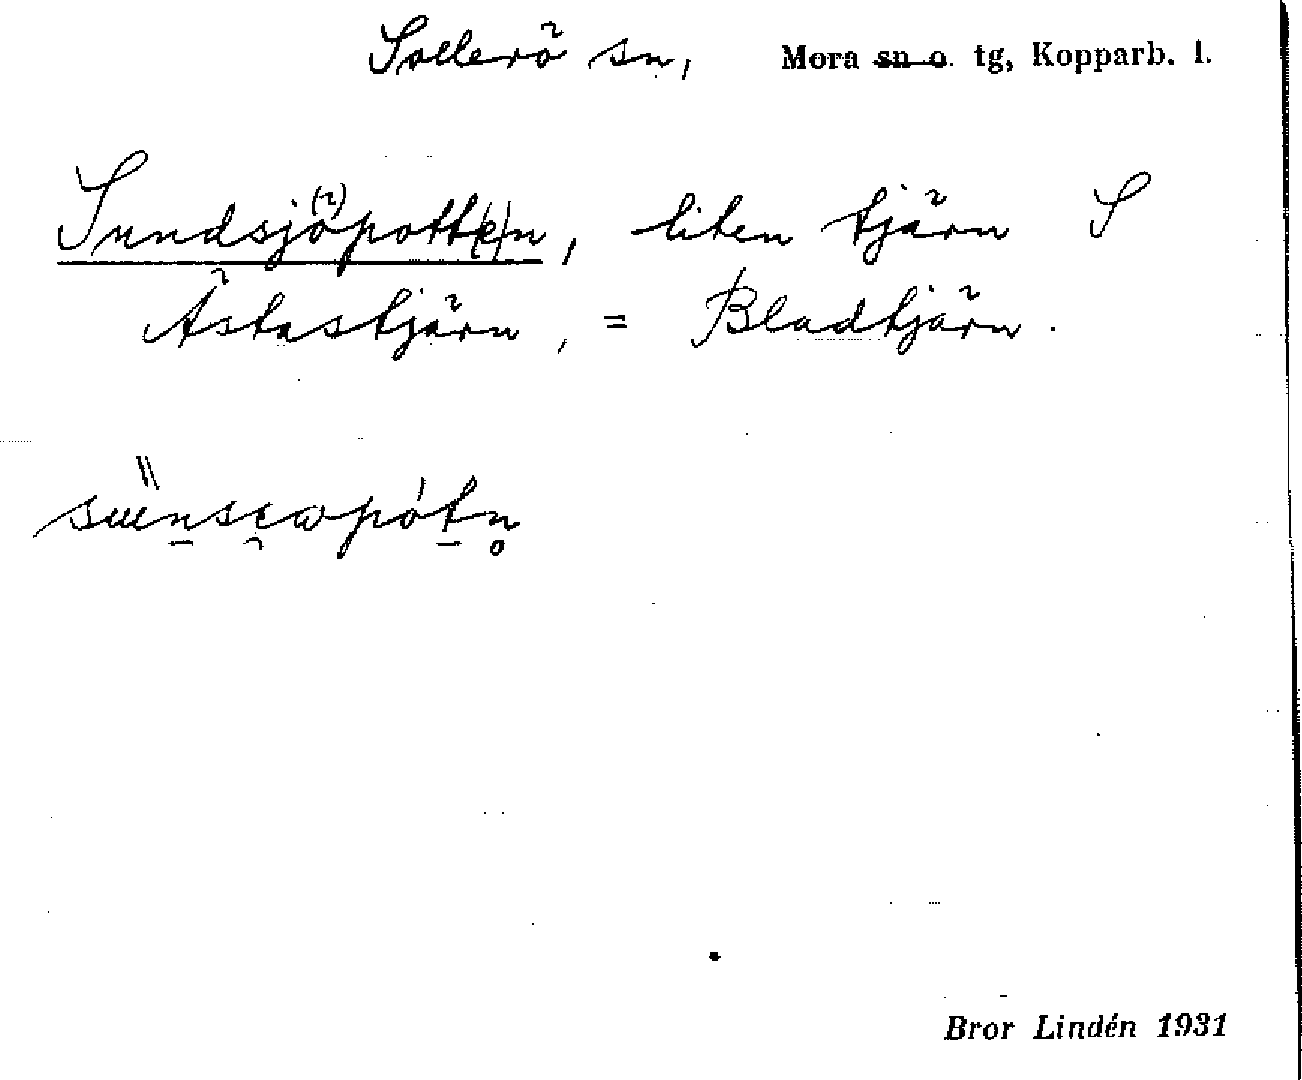 Sollerö sn, Mora ~~sn o.~~ tg, Kopparb. l.
Sundsjö(~)pott(e)n, liten tjärn S
Ästastjärn, = Bladtjärn.
Bror Lindén 1931